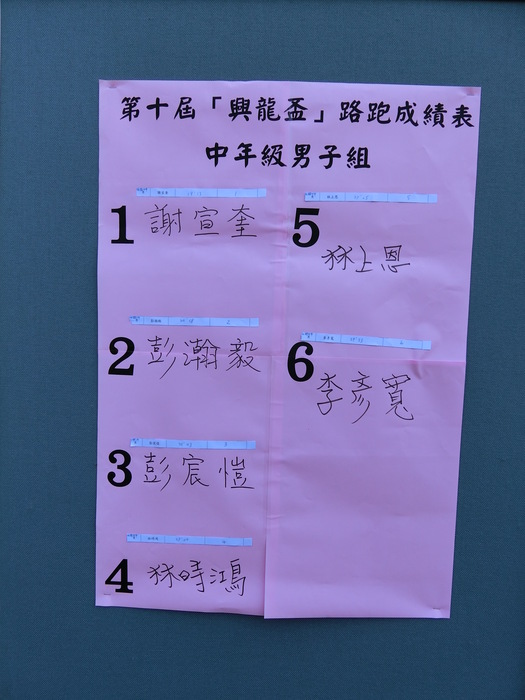 第十屆「興龍盃」路跑成績表
中年級男子組
1 謝宣奎
2 彭瀚毅
3 彭宸愷
4 林時鴻
5 林上恩
6 李彥寬